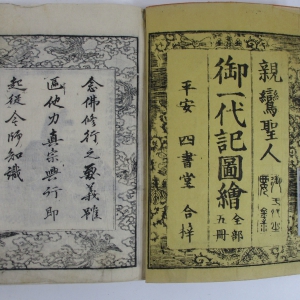 親鸞聖人
御一代記圖繪
全部
九冊
平安 四書堂 合梓
念佛修行之要義雖
區他力真宗興行即
起從今師知識